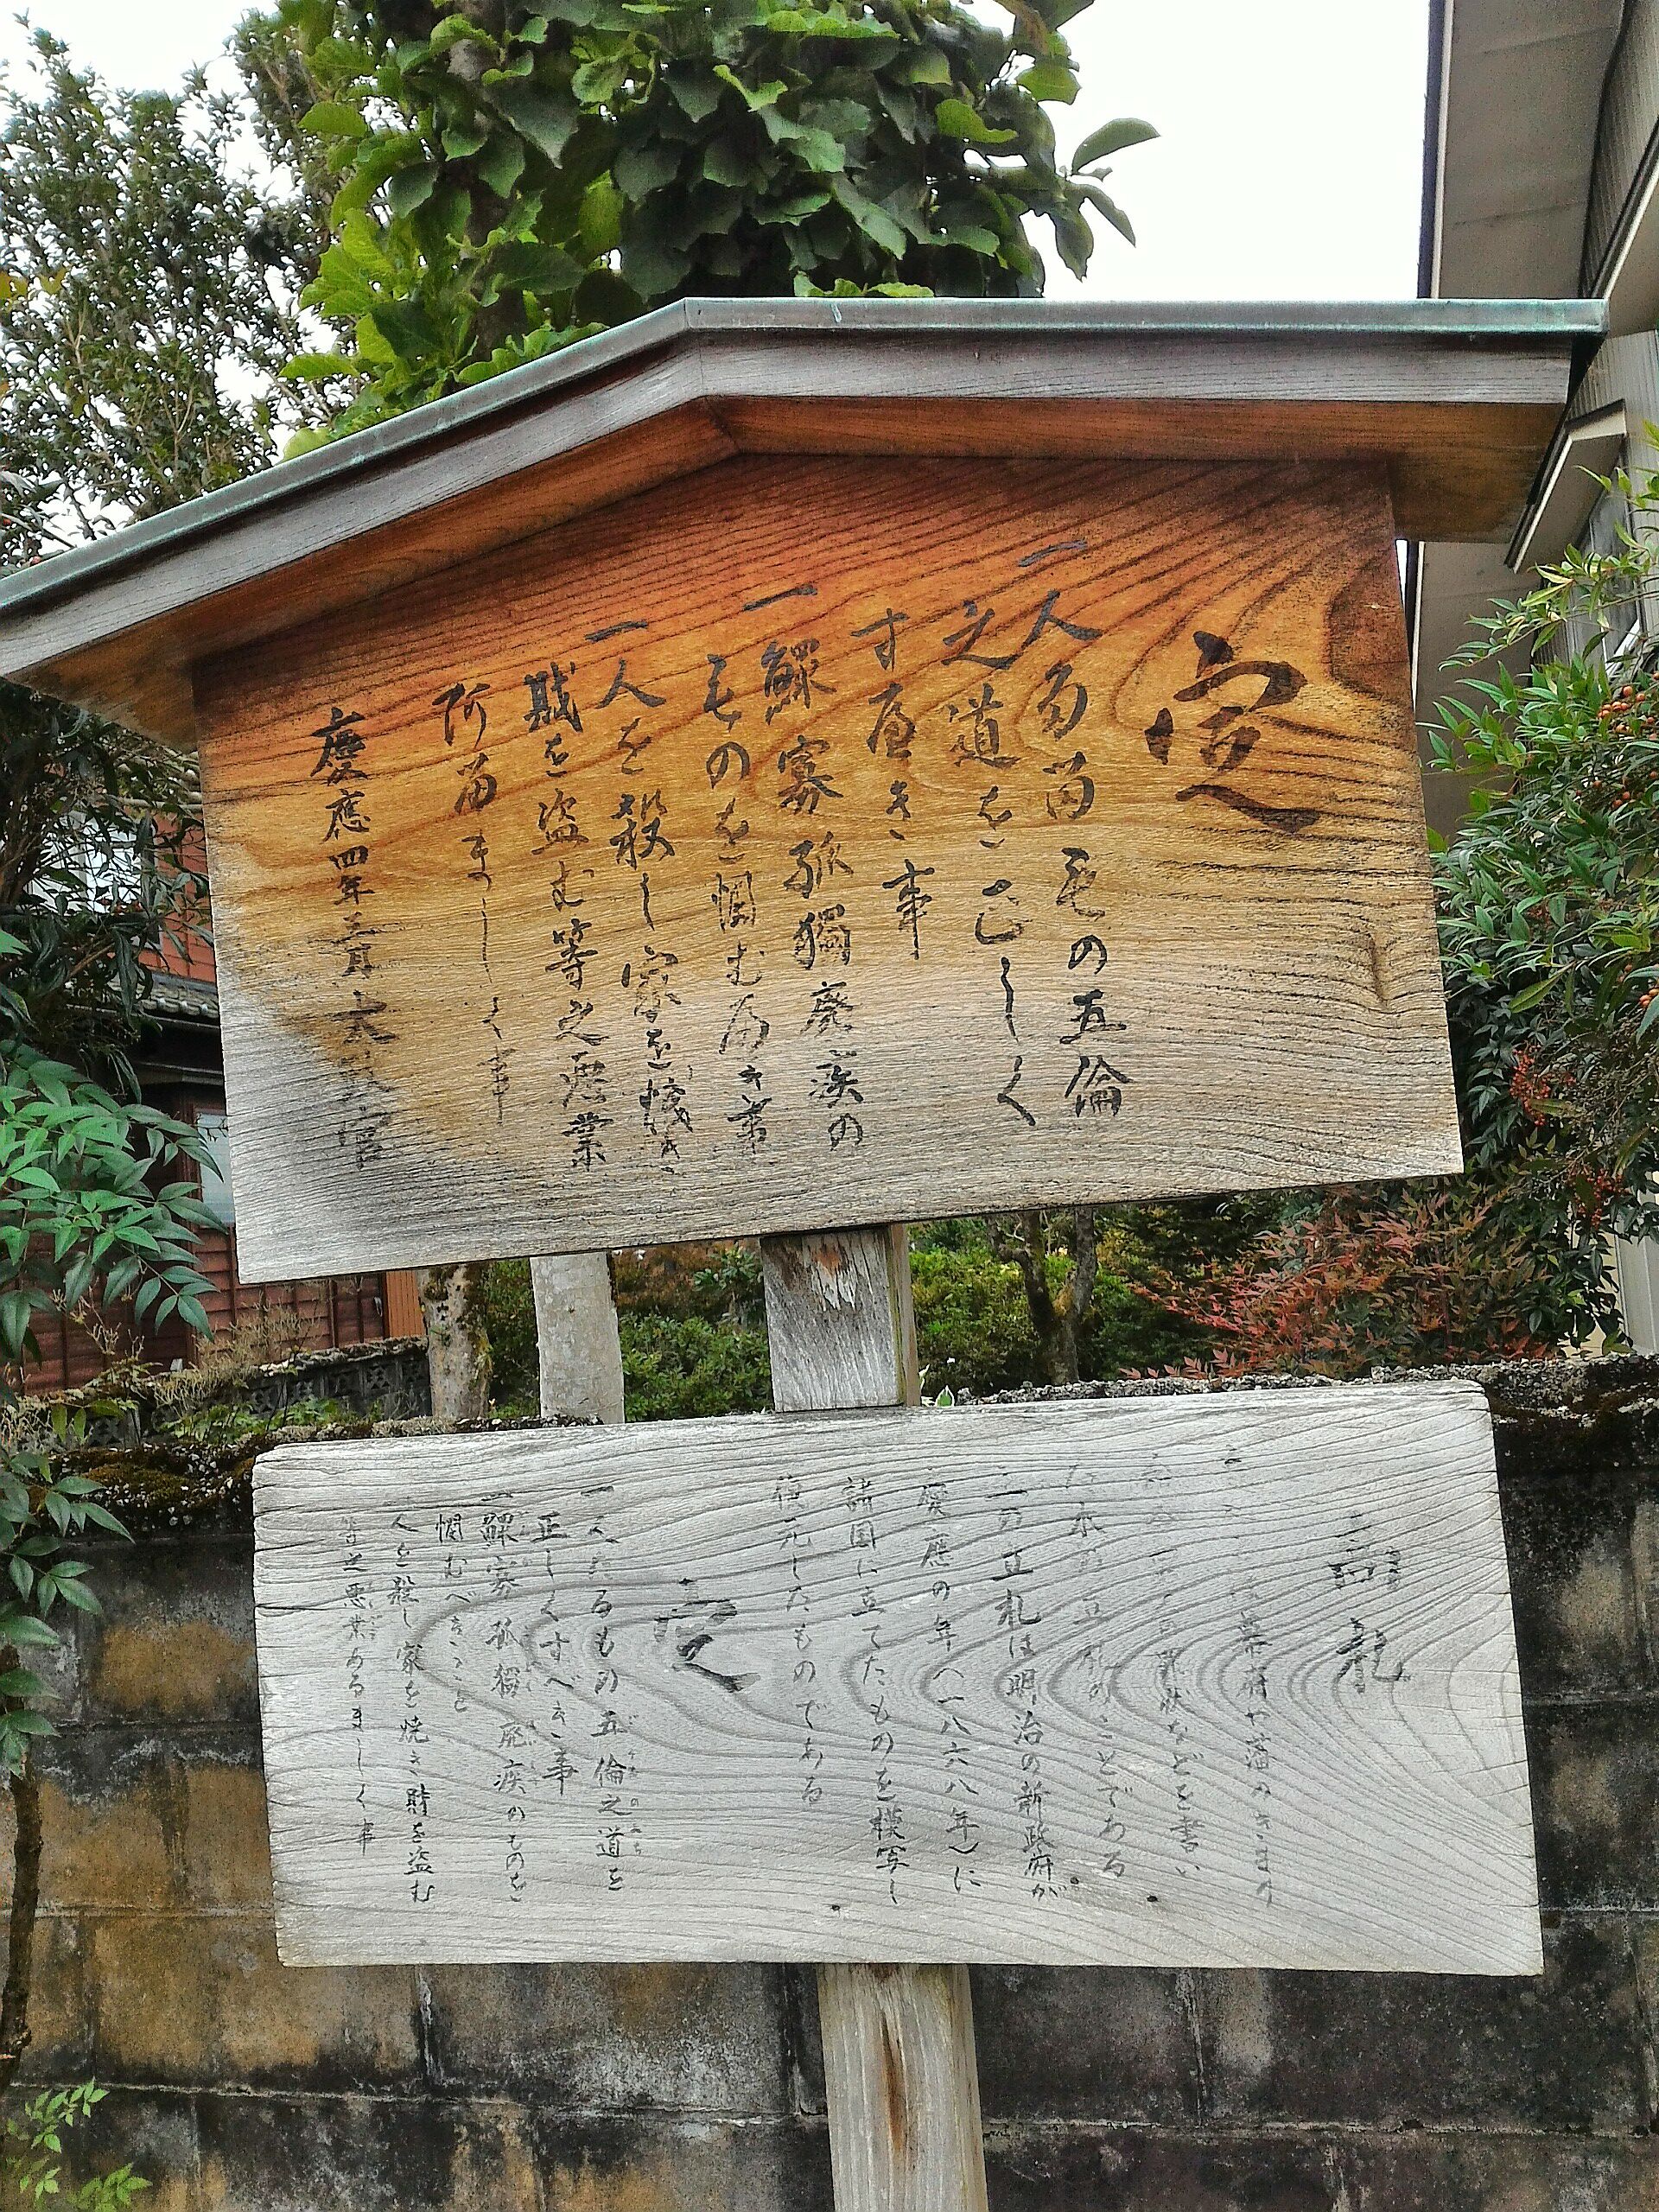 定
一人多る毛の五倫
之道を正しく
す遍き事
一鰥寡孤獨廃疾の
ものを憫む遍き事
一人を殺し家を焼き
財を盗む等之悪業
阿留ましく事
慶應四年三月 太政官
札
幕府や藩のきまり
罪状などを書い
ことである
この立札は明治の新政府が
慶應の年(一八六八年)に
諸国に立てたものを模写し
復元したものである
定
一人たるもの五倫之道を
正しくすべき事
一鰥寡孤獨廃疾のものを
憫むべきこと
一人を殺し家を焼き財を盗む
等之悪業あるましく事